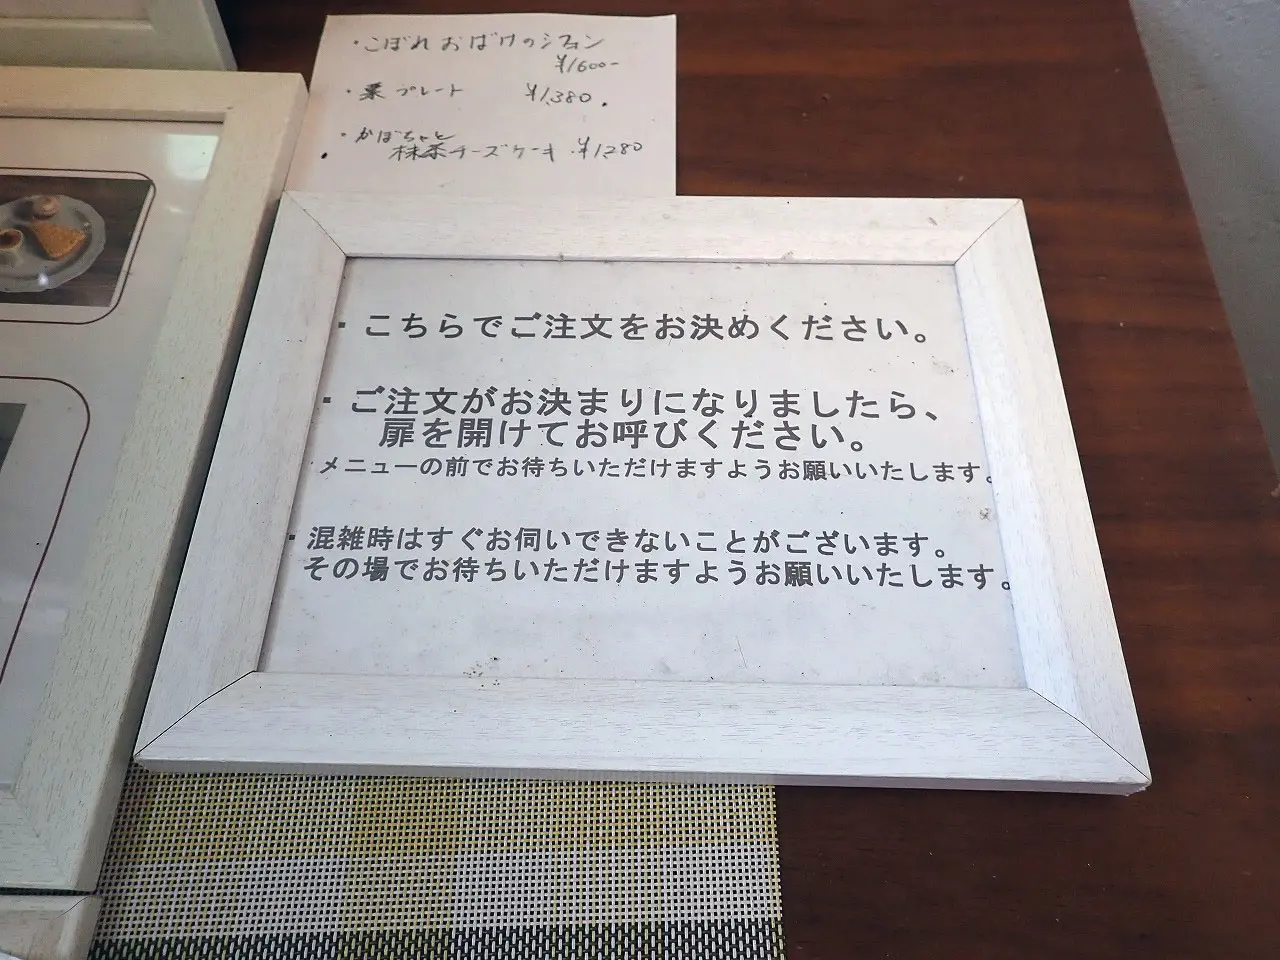 ・こぼれおばけのシフォン
¥1600-
・栗プレート ¥1,380.
・かぼちゃと
抹茶チーズケーキ ¥1,280
・こちらでご注文をお決めください。
・ご注文がお決まりになりましたら、
扉を開けてお呼びください。
・メニューの前でお待ちいただけますようお願いいたします。
・混雑時はすぐお伺いできないことがございます。
その場でお待ちいただけますようお願いいたします。